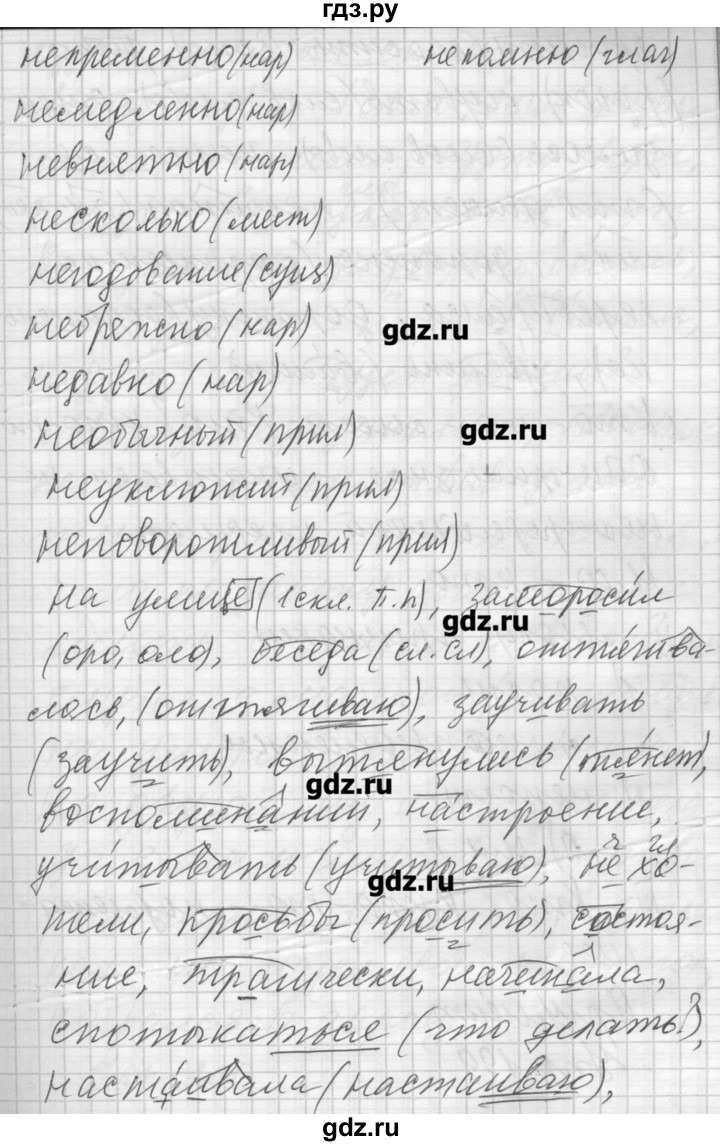 гдз.ру
непременно(нар) не помню (глаг)
немедленно(нар)
невнятно (нар)
несколько(мест)
негодование(сущ)
небрежно (нар)
gdz.ru
недавно (нар)
необычный (прил)
gdz.ru
неуклюжий (прил)
неповоротливый (прил)
на улице (1скл. П.п), заморосил
gdz.ru
(оро, оло), беседа (сл.сл), оттягива-
лось, (оттягиваю), заучивать
(заучить), вытянулись (тянет),
gdz.ru
воспоминании, настроение,
учитывать (учитываю), не хо-
ч гл
gdz.ru
тели, просьбы (просить), состоя-
ние, трагически, начинала,
спотыкаться (что делать?),
настаивала (настаиваю),
gdz.ru